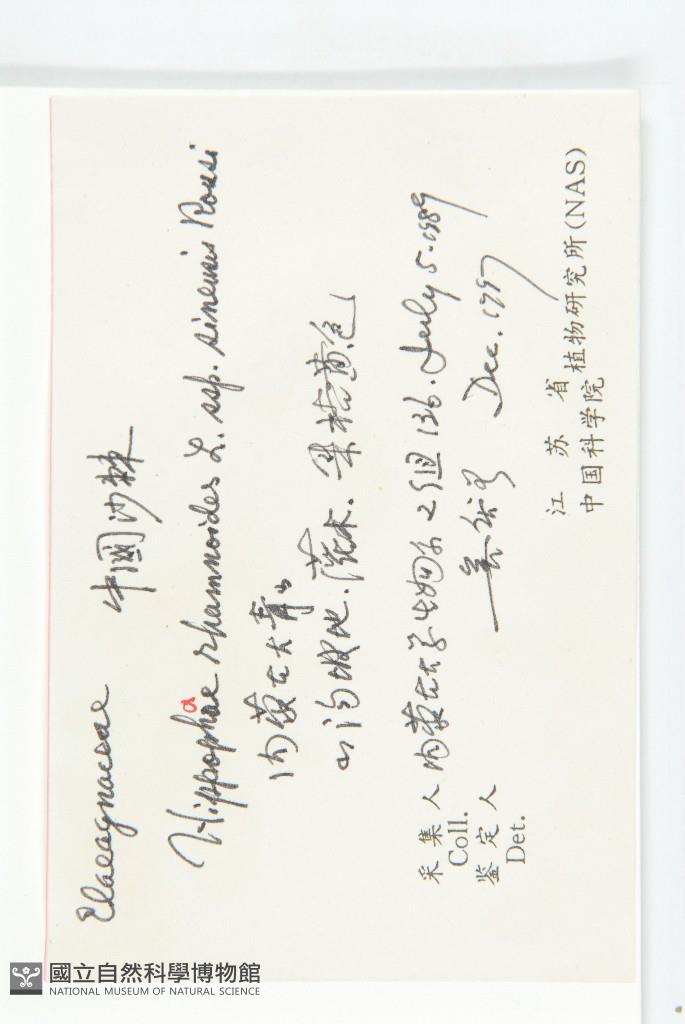 Elaeagnaceae 中國沙棘
Hippophae rhamnoides L. ssp. sinensis Rousi
a
内蒙古大青山
山沟坡地. 灌木. 果桔黄色
采集人 内蒙古大学生物系2组 136. July 5. 1989
Coll.
鉴定人 Dec. 1997
Det.
江苏省植物研究所(NAS)
中国科学院
國立自然科學博物館
NATIONAL MUSEUM OF NATURAL SCIENCE